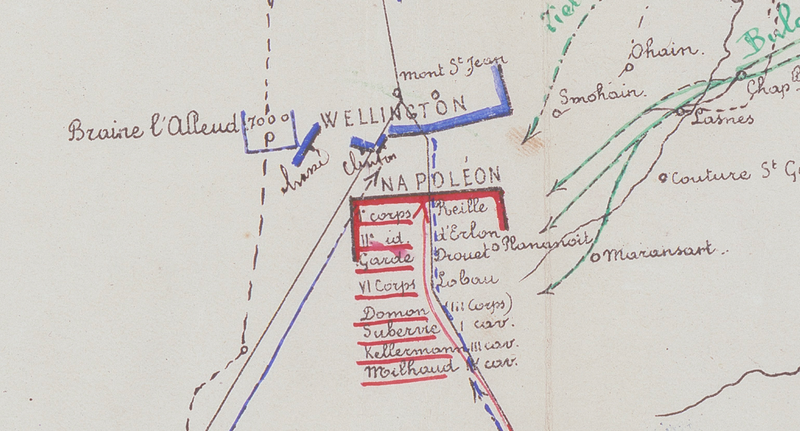 Tier
Ohain.
Bulo
mont St Jean
Smohain.
Chap
Lasnes
Braine l'Alleud
7000
WELLINGTON
Chassé
Clinton
Couture St G
NAPOLÉON
I corps Reille
II id d'Erlon
Plananoit
Garde Drouet
Maransart.
VI Corps Lobau
(III Corps)
Domon I cav.
Subervie
Kellermann III cav.
Milhaud IV cav.